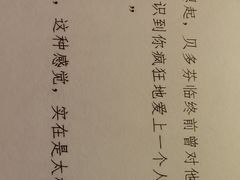 起，贝多芬临终前曾对他
识到你疯狂地爱上一个人
”
，这种感觉，实在是太